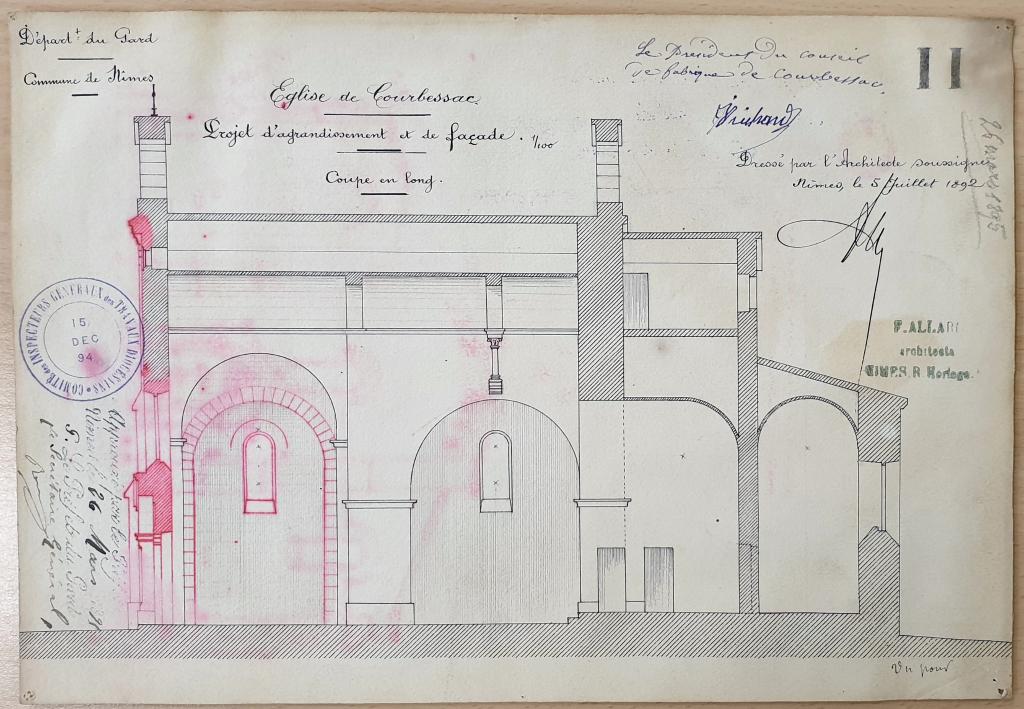 Départ.t du Gard
Commune de Nîmes
Eglise de Courbessac
Projet d'agrandissement et de façade. 1/100
Coupe en long.
Le Président du conseil
de fabrique de Courbessac,
II
Dressé par l'Architecte soussigné
Nîmes, le 5 Juillet 1892
26 mars 1895
F. ALLARD
architecte
NIMES, R Horloge.
COMITÉ des INSPECTEURS GÉNÉRAUX des TRAVAUX DIOCÉSAINS
15
DEC
94
Approuvé par le Préfet
Nîmes le 26 Mars
P. Le Préfet du Gard
Le Secrétaire Général,
Vu pour